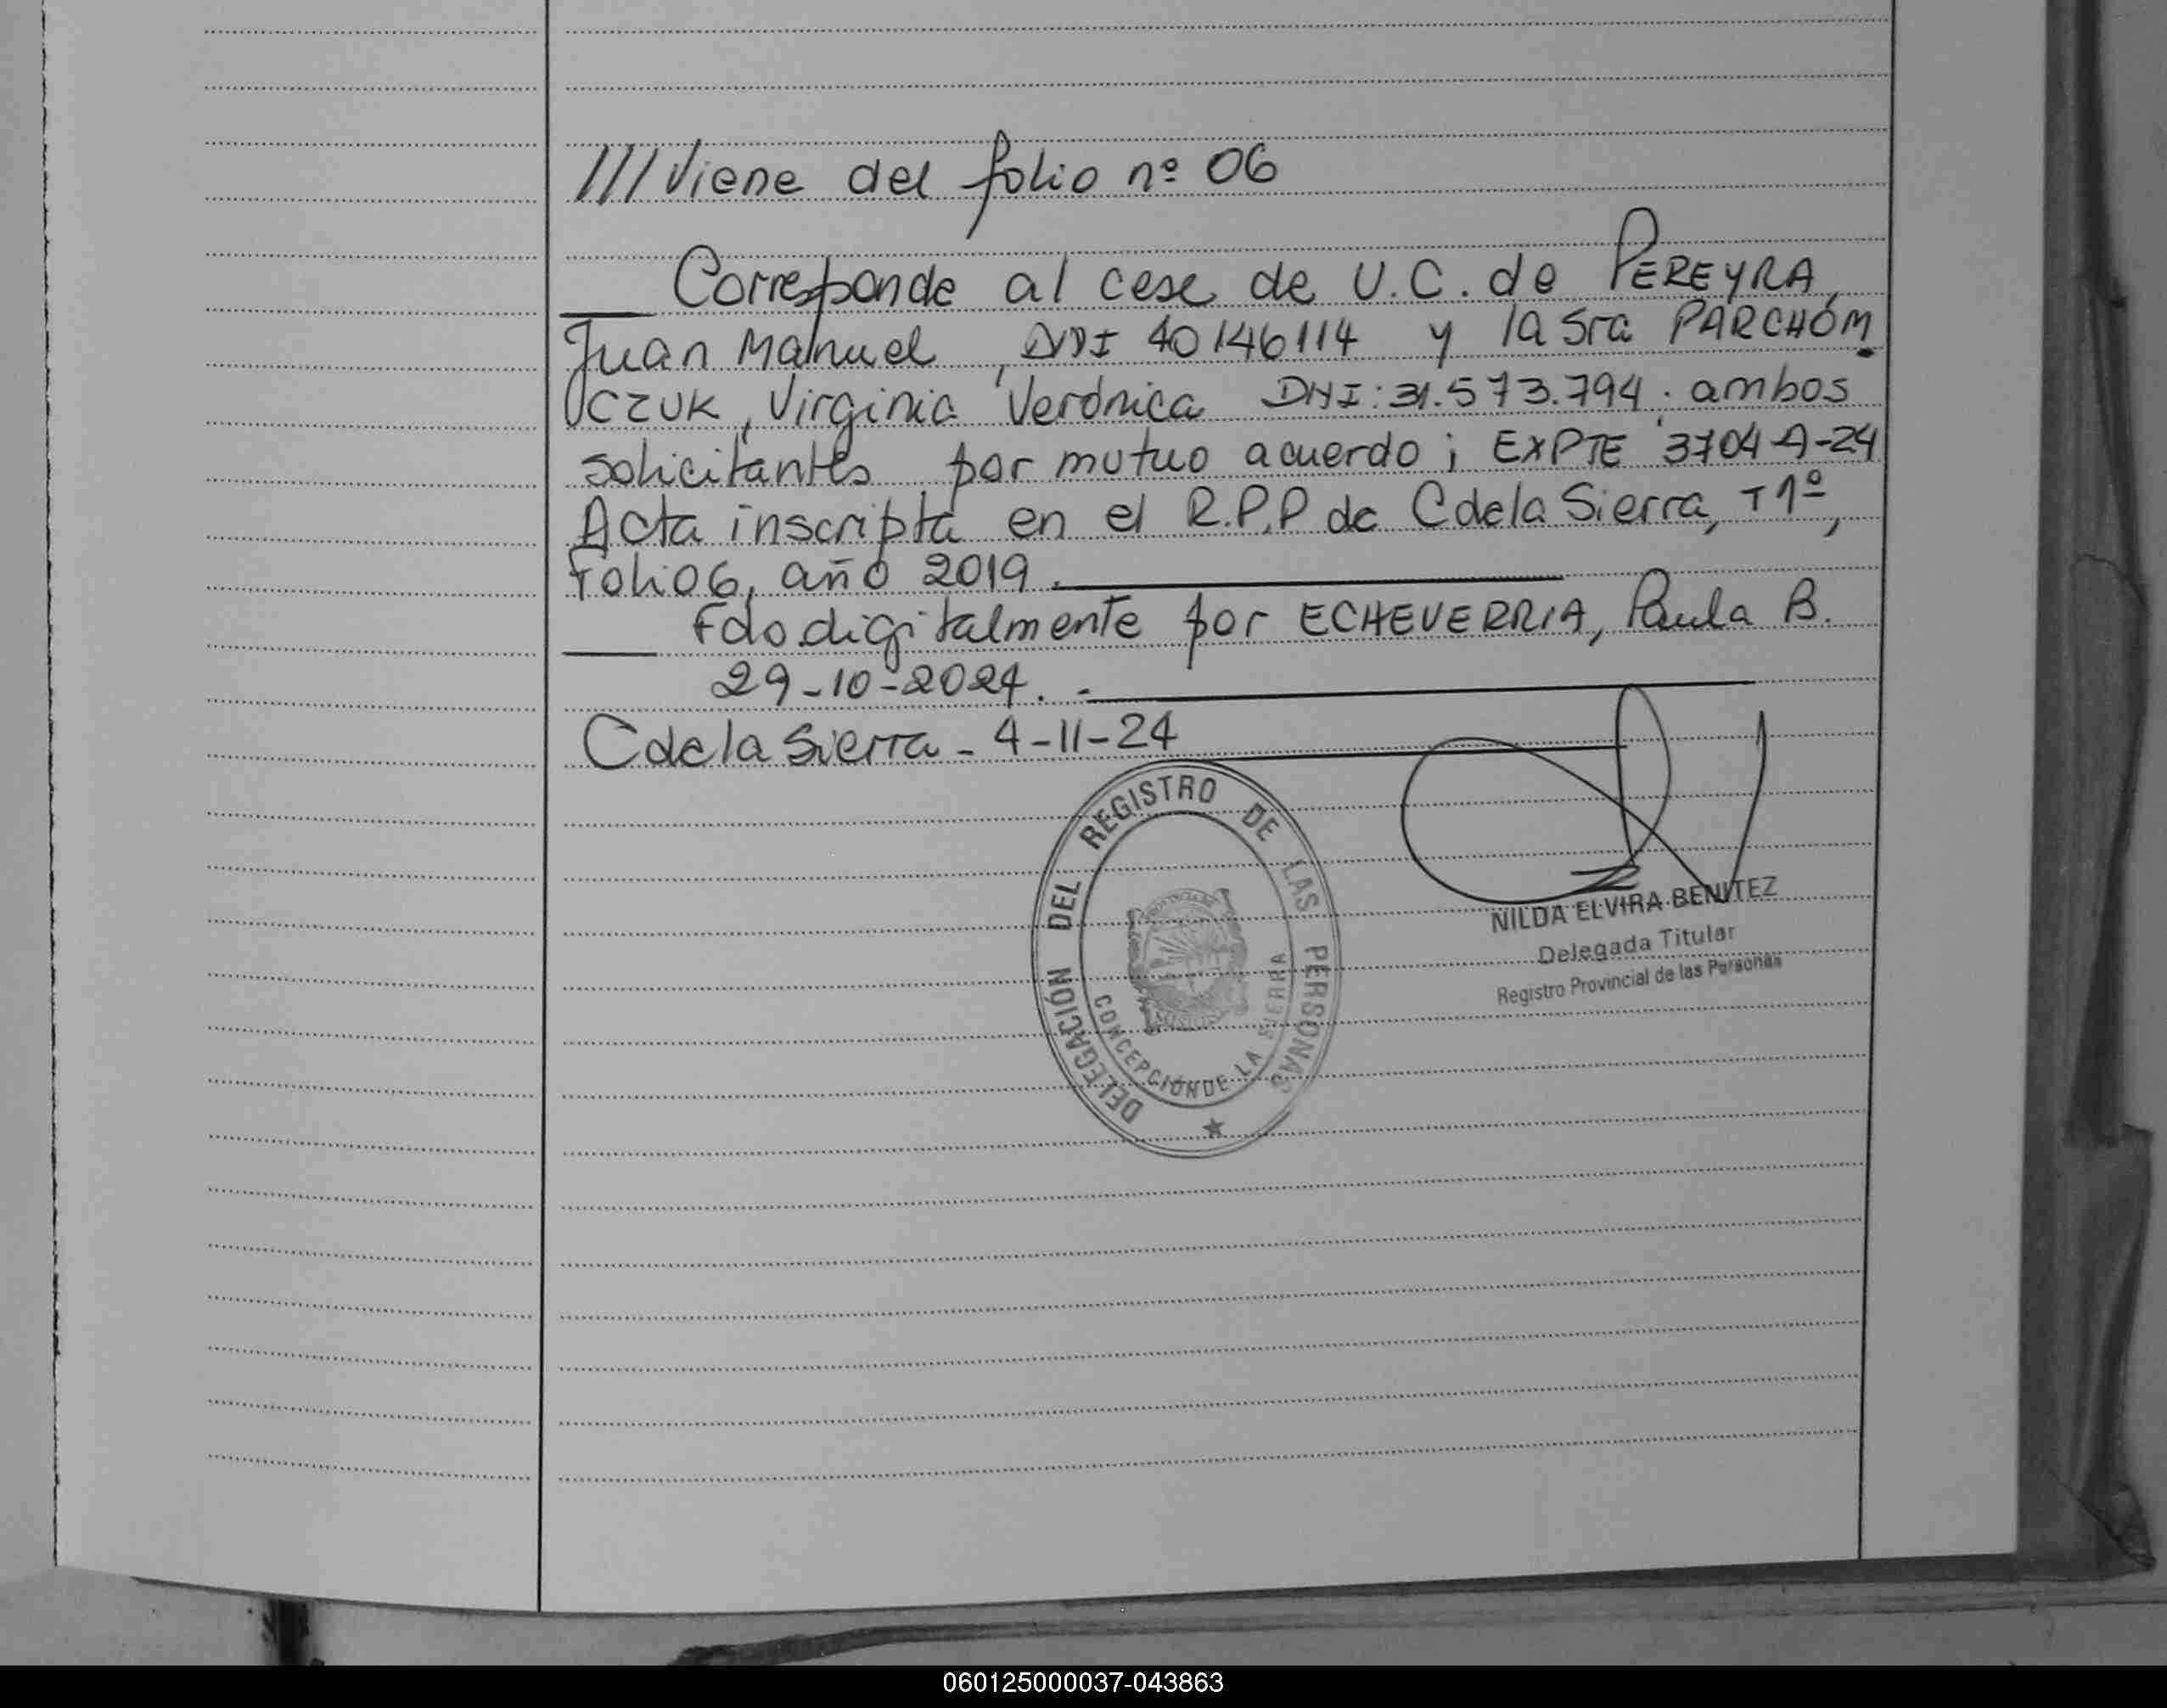 ///Viene del folio nº 06
Corresponde al cese de U.C. de PEREYRA,
Juan Manuel, DNI 40146114 y la Sra PARCHOM
CZUK, Virginia Verónica DNI: 31.573.794. ambos
solicitantes por mutuo acuerdo; EXPTE 3704-A-24
Acta inscripta en el R.P.P de C de la Sierra, T 1º,
Folio 6, año 2019.
Fdo digitalmente por ECHEVERRIA, Paula B.
29-10-2024. -
C de la Sierra - 4-11-24
DELEGACIÓN DEL REGISTRO DE LAS PERSONAS
CONCEPCIÓN DE LA SIERRA
NILDA ELVIRA BENITEZ
Delegada Titular
Registro Provincial de las Personas
060125000037-043863